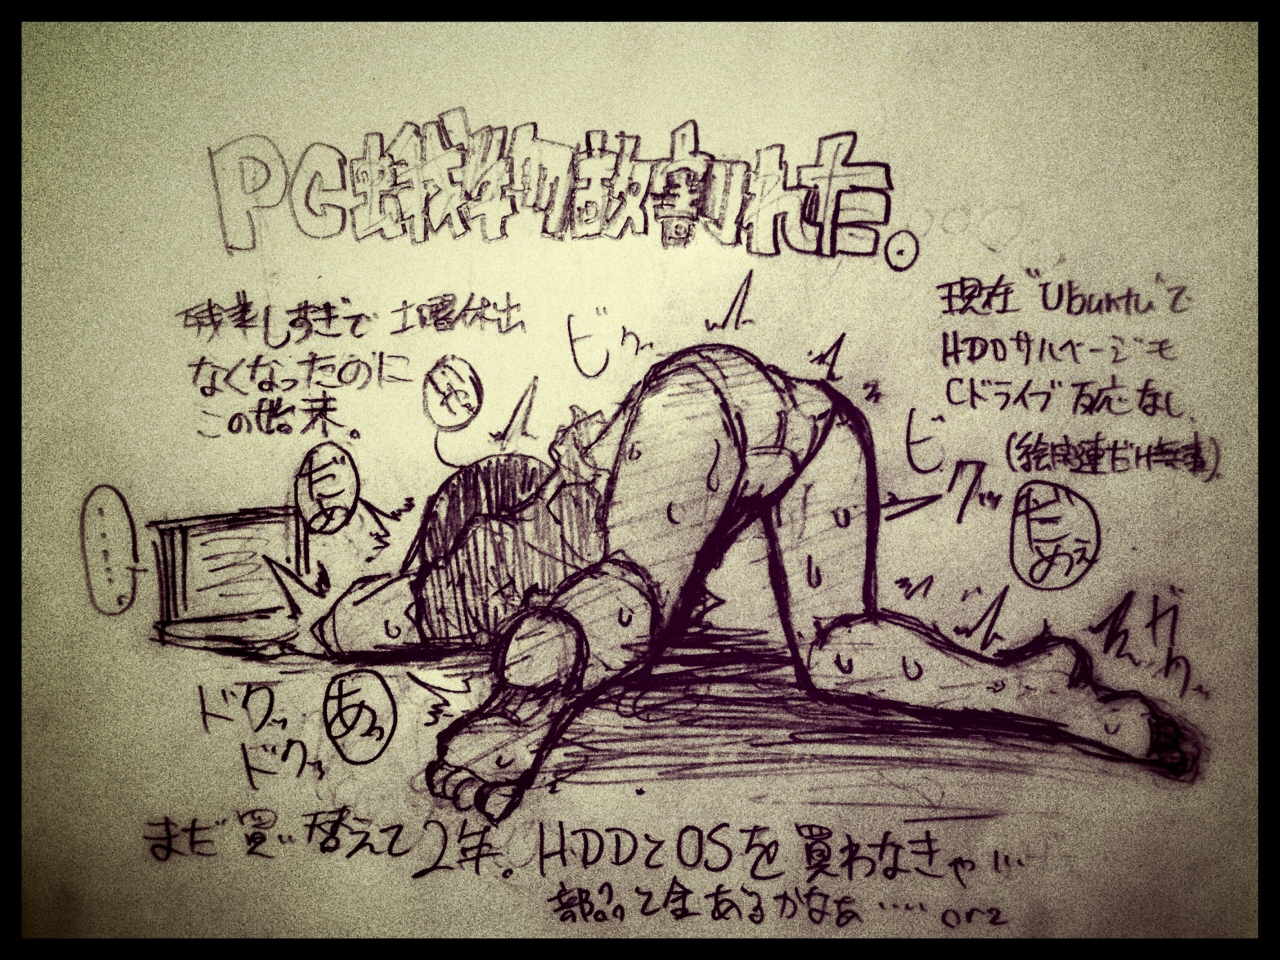 PC
割れた。
残業しすぎで 土曜休出
なくなったのに
この始末。
現在"Ubuntu"で
HDDサルベージも
Cドライブ反応なし
(絵関連だけ無事)
ビクッ
や
だめ
……。
ビクッ
だめぇ
ガクッ
ドクッ
あっ
ドクッ
まだ買い替えて2年。HDDとOSを買わなきゃ…
部品と金あるかなぁ…… orz